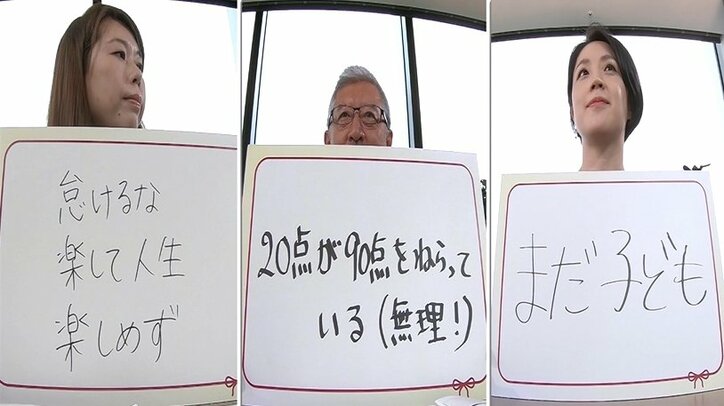 怠けるな
楽して人生
楽しめず
20点が90点をねらって
いる(無理!)
まだ子ども